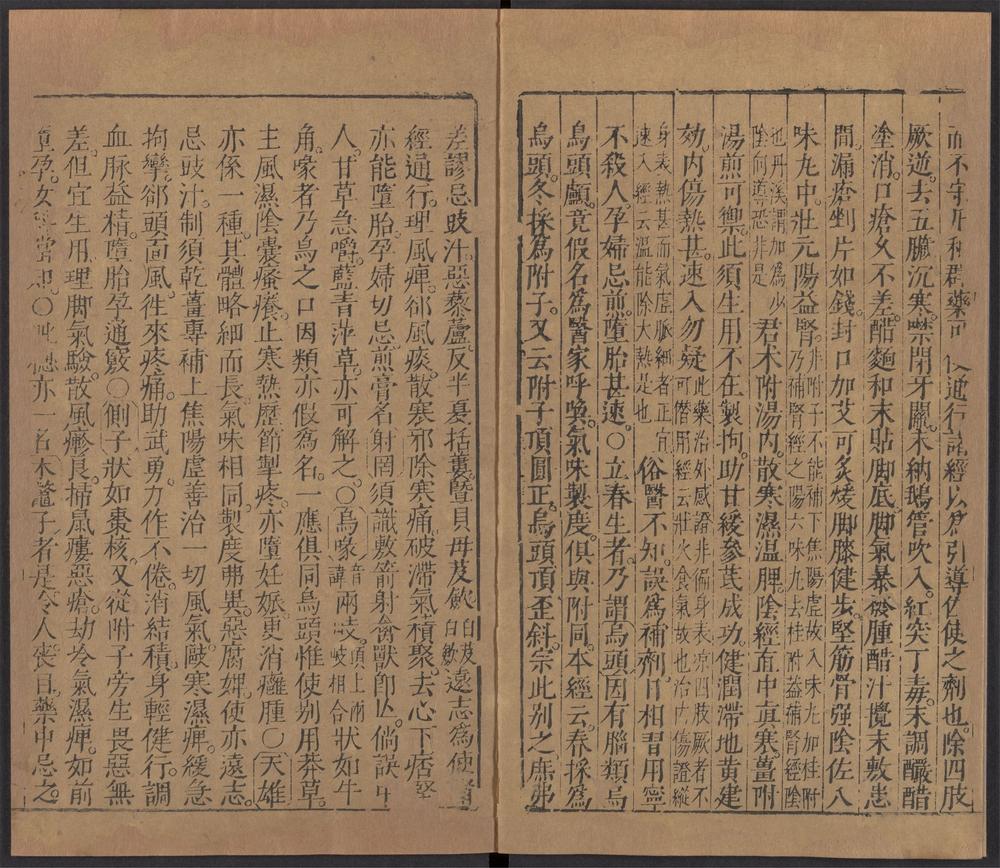 而不守凡和群藥可 通行諸經以爲引導佐使之劑也除四肢
厥逆去五臟沉寒噤閉牙關末納鵝管吹入紅突丁毒末調釅醋
塗消口瘡久不差醋麵和末貼脚底脚氣暴發腫醋汁攪末敷患
間漏瘡剉片如錢封口加艾可灸煖脚膝健步堅筋骨强陰佐八
味丸中壯元陽益腎非附子不能補下焦陽虛故入味丸加桂附
乃補腎經之陽六味丸去桂附益補腎經陰
也丹溪謂加爲少
陰向導恐非是君术附湯内散寒濕温脾陰經直中眞寒薑附
湯煎可禦此須生用不在製拘助甘緩參芪成功健潤滯地黄建
効内傷熱甚速入勿疑此藥治外感證非徧身表凉四肢厥者不
可僭用經云壯火食氣故也治内傷證縱
身表熱甚而氣虛脈細者正宜
速入經云温能除大熱是也俗醫不知誤爲補劑日相習用寧
不殺人孕婦忌煎墮胎甚速○立春生者乃謂烏頭因有腦類烏
烏頭顱竟假名爲醫家呼喚氣味製度俱與附同本經云春採爲
烏頭冬採爲附子又云附子頂圓正烏頭頂歪斜宗此别之庶弗
差謬忌豉汁惡藜蘆反半夏括蔞暨貝母芨歛白芨白歛遠志爲使
經通行理風痺郤風痰散寒邪除寒痛破滯氣積聚去心下痞堅
亦能墮胎孕婦切忌煎膏名射罔須識敷箭射禽獸即仆倘誤中
人甘草急嚼藍青萍草亦可解之○烏喙音諱兩歧頂上兩歧相合狀如牛
角喙者乃烏之口因類亦假爲名一應俱同烏頭惟使别用莽草
主風濕陰囊瘙癢止寒熱歷節掣疼亦墮妊娠更消癰腫○天雄
亦係一種其體略細而長氣味相同製度弗異惡腐婢使亦遠志
忌豉汁制須乾薑專補上焦陽虛善治一切風氣敺寒濕痺緩急
拘攣郤頭面風往來疼痛助武勇力作不倦消結積身輕健行調
血脉益精墮胎孕通竅○側子狀如棗核又從附子旁生畏惡無
差但宜生用理脚氣驗散風癮良掃鼠瘻惡瘡劫冷氣濕痺如前
墮孕女 當忌○ 種亦一名木鼈子者是令人喪目藥中忌之